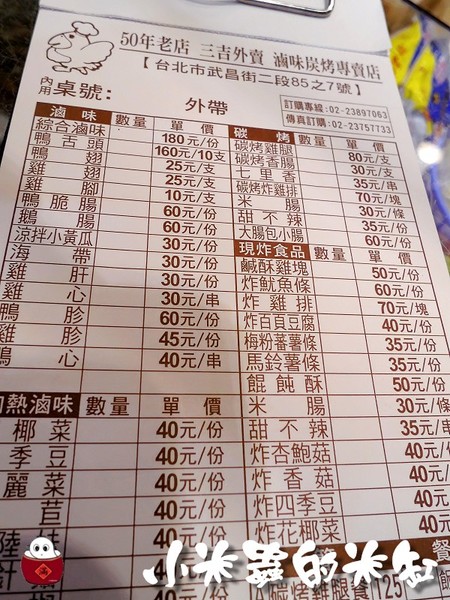 50年老店 三吉外賣 滷味炭烤專賣店
【台北市武昌街二段85之7號】
內用桌號： 外帶
訂購專線:02-23897063
傳真訂購:02-23757733
滷味 數量 單價
綜合滷味 180元/份
鴨舌頭 160元/10支
鴨翅 25元/支
雞翅 25元/支
雞腳 10元/支
鴨脆腸 60元/份
鵝腸 60元/份
涼拌小黃瓜 30元/份
海帶 30元/份
雞肝 30元/份
雞心 30元/串
鴨胗 60元/份
雞胗 45元/份
心 40元/串
熱滷味 數量 單價
椰菜 40元/份
季豆 40元/份
麗菜 40元/份
苣 40元/份
陸 40元/份
40元/份
碳烤 數量 單價
碳烤雞腿 80元/支
碳烤香腸 30元/支
七里香 35元/串
碳烤炸雞排 70元/塊
米腸 30元/條
甜不辣 35元/份
大腸包小腸 60元/份
現炸食品 數量 單價
鹹酥雞塊 50元/份
炸魷魚條 60元/份
炸雞排 70元/塊
炸百頁豆腐 40元/份
梅粉蕃薯條 35元/份
馬鈴薯條 35元/份
餛飩酥 50元/份
米腸 30元/條
甜不辣 35元/串
炸杏鮑菇 40元/份
炸香菇 40元/份
炸四季豆 40元/份
炸花椰菜 40元/份
餐
A碳烤雞腿餐 125元
小米蟲的米缸